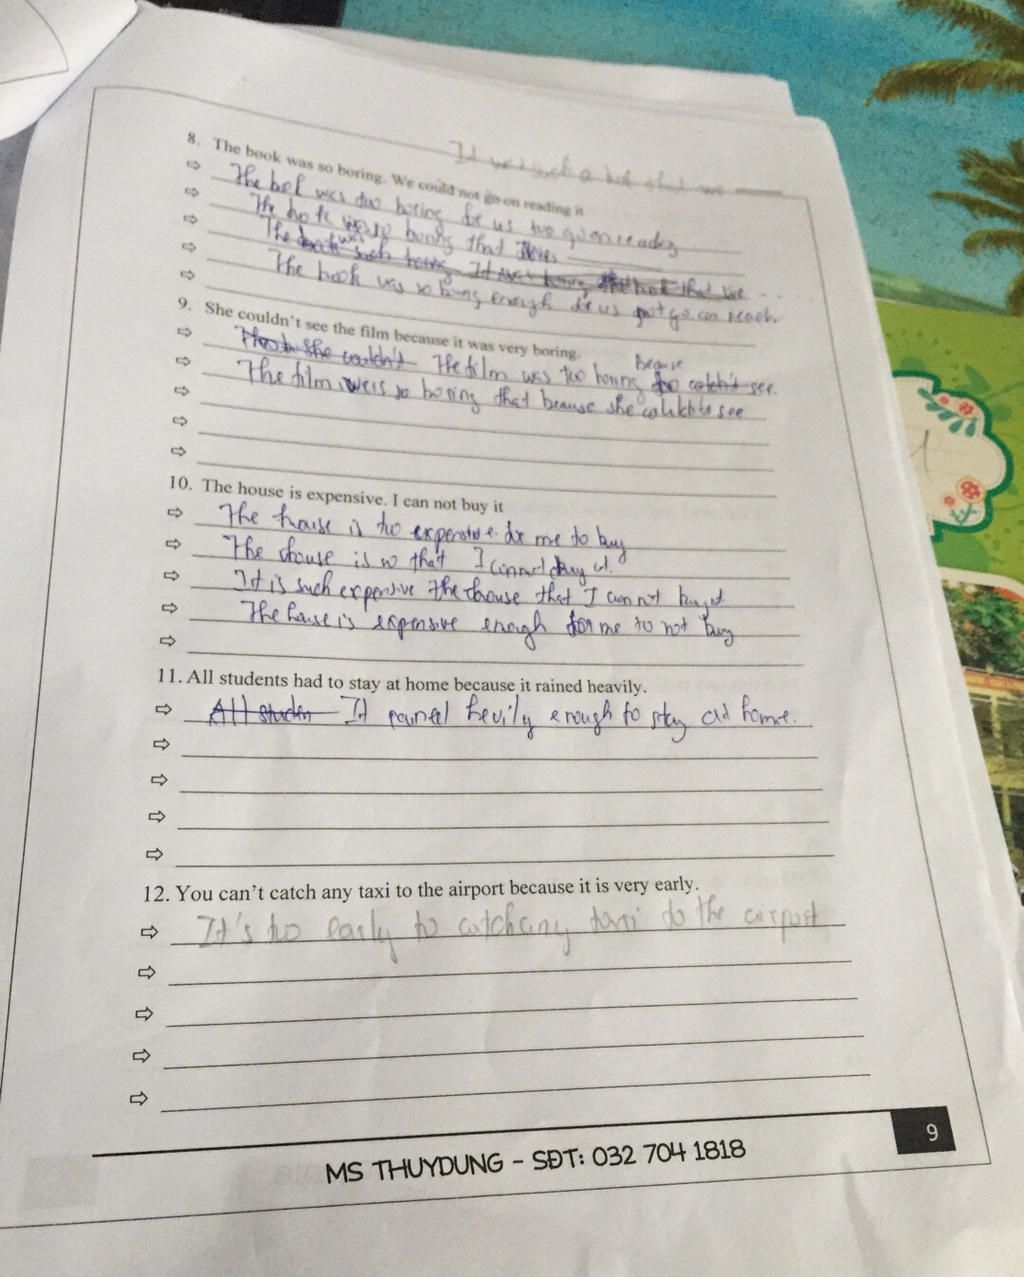 It was such a bok that we
8. The book was so boring. We could not go on reading it
⇨ The bok was too boring for us two go on reading
⇨ The bo k was so boring that
⇨ The was such boring It was boring the book that we
⇨ The book was so boring enough for us not go on reach
⇨
9. She couldn't see the film because it was very boring.
because
⇨ she couldn't The film was too boring see.
⇨ The film was so boring that beause she see
⇨
⇨
⇨
10. The house is expensive. I can not buy it
⇨ The house is too expensive for me to buy
⇨ The house is so that I connot buy it.
⇨ It is such expensive the house that I can not buy it
⇨ The house is expensive enough for me to not buy
⇨
11. All students had to stay at home because it rained heavily.
⇨ All studen It rained hevily enough to stay at home.
⇨
⇨
⇨
⇨
12. You can't catch any taxi to the airport because it is very early.
⇨ It's too early to catch any taxi to the airport
⇨
⇨
⇨
⇨
9
MS THUYDUNG - SĐT: 032 704 1818